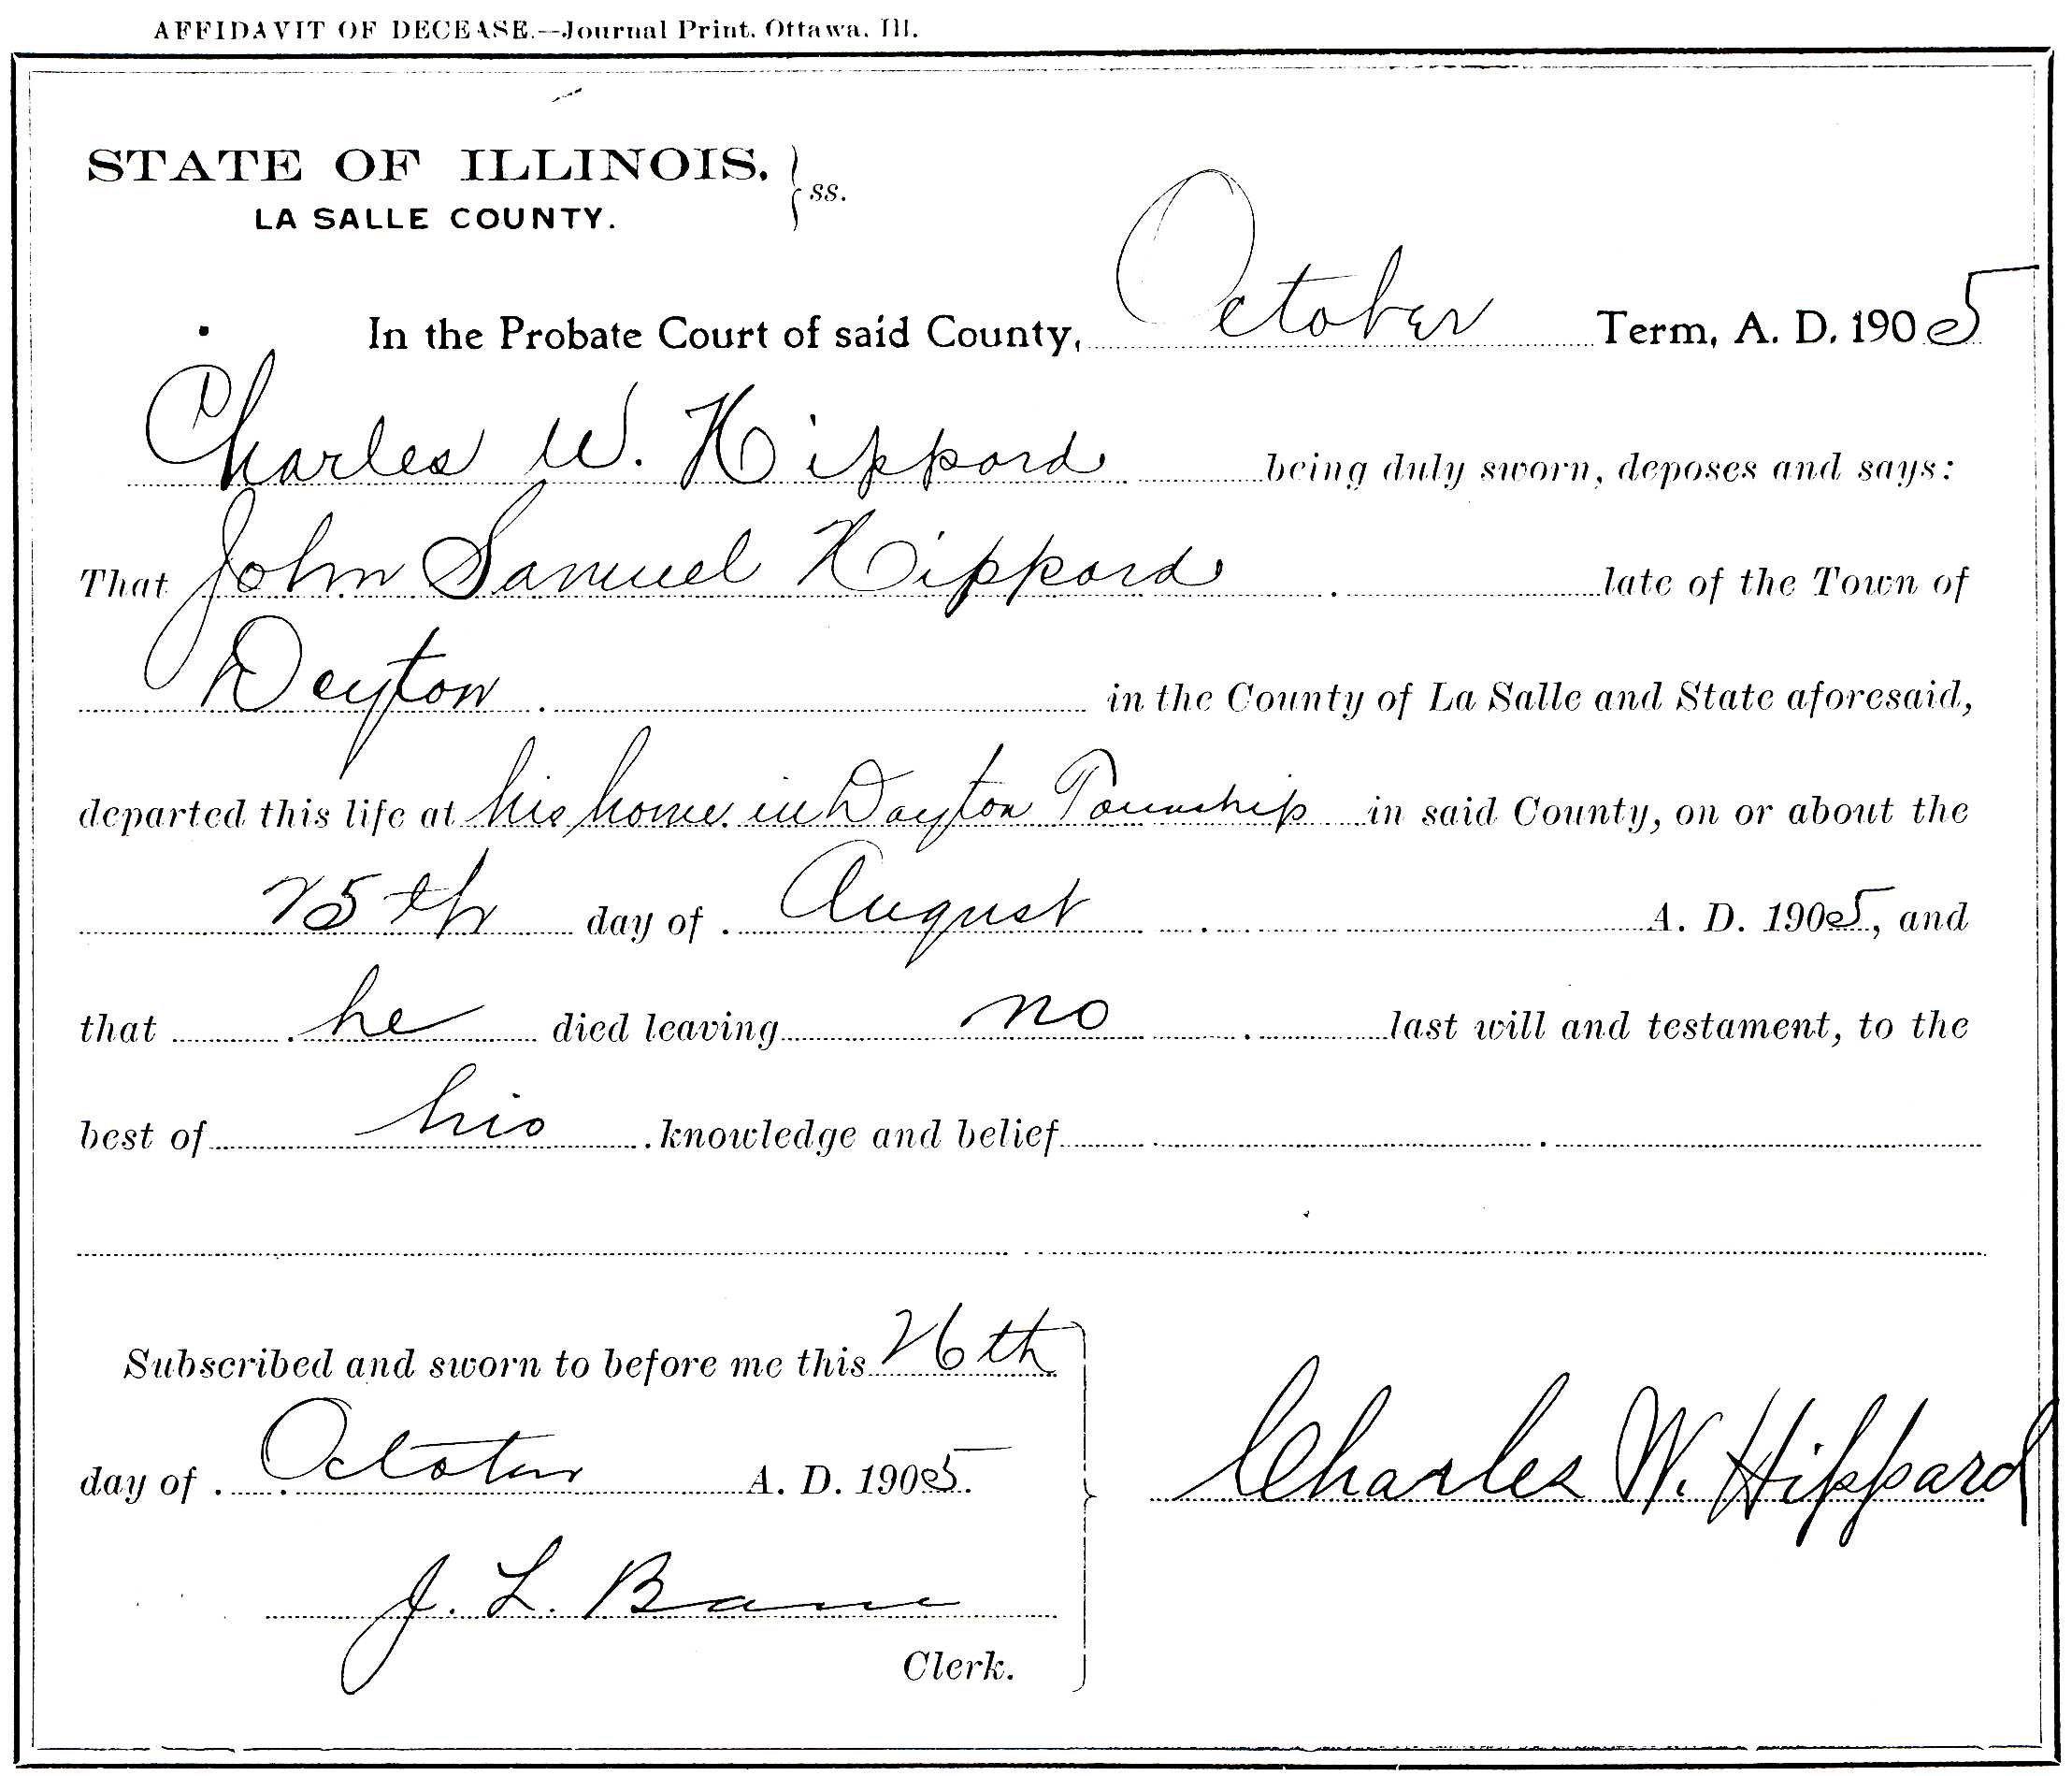 AFFIDAVIT OF DECEASE.—Journal Print, Ottawa, Ill.
STATE OF ILLINOIS, } ss.
LA SALLE COUNTY.
In the Probate Court of said County, October Term, A. D. 1905
Charles W. Hippard being duly sworn, deposes and says:
That John Samuel Hippard late of the Town of
Deyton in the County of La Salle and State aforesaid,
departed this life at his home in Dayton Township in said County, on or about the
25th day of August A. D. 1905, and
that he died leaving no last will and testament, to the
best of his knowledge and belief
Subscribed and sworn to before me this 26th
day of October A. D. 1905.
Charles W. Hippard
J. L. Bane
Clerk.